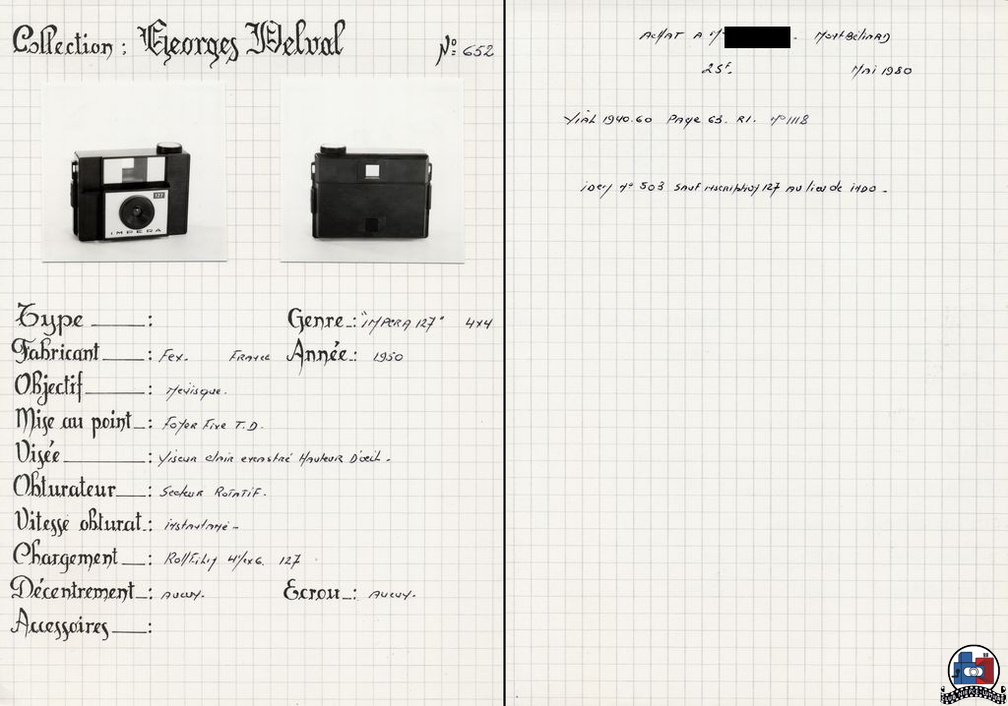 Collection : Georges Delval
N° 652
127
IMPERA
Type : Genre : "IMPERA 127" 4x4
Fabricant : Fex. France Année : 1950
Objectif : Ménisque.
Mise au point : Foyer Fixe T.D.
Visée : Viseur clair encastré Hauteur D'œil.
Obturateur : Secteur Rotatif.
Vitesse obturat. : instantané -
Chargement : RollFilm 4½x6. 127
Décentrement : Aucun. Ecrou : Aucun.
Accessoires :
Achat A Mr . Montbéliard
25F. Mai 1980
Vial 1940.60 Page 63. R1. n° 1118
idem n° 503 sauf inscription 127 au lieu de